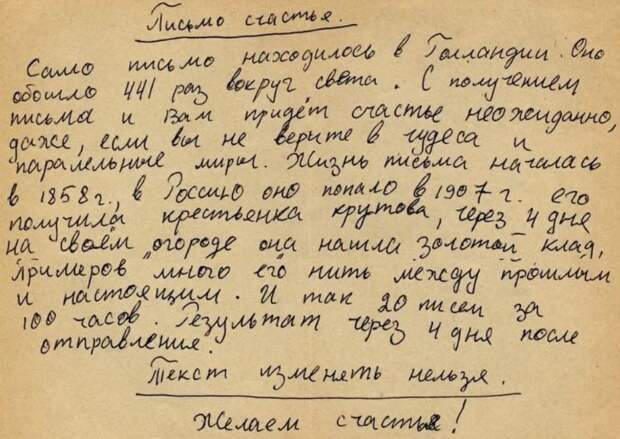 Письмо счастья.
Само письмо находилось в Голландии. Оно
обошло 441 раз вокруг света. С получением
письма и Вам придёт счастье неожиданно,
даже, если вы не верите в чудеса и
паралельные миры. Жизнь письма началась
в 1858г., в Россию оно попало в 1907г. его
получила крестьенка крутова, через 4 дня
на своём огороде она нашла золотой клад,
примеров много его нить между прошлым
и настоящим. И так 20 писем за
100 часов. Результат через 4 дня после
отправления.
Текст изменять нельзя.
Желаем счастья!